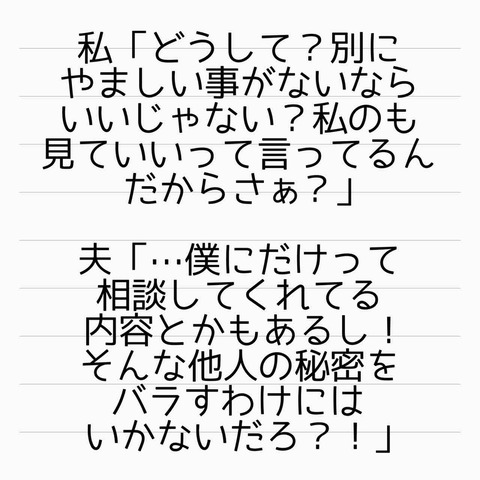 私「どうして？別に
やましい事がないなら
いいじゃない？私のも
見ていいって言ってるん
だからさぁ？」
夫「…僕にだけって
相談してくれてる
内容とかもあるし！
そんな他人の秘密を
バラすわけには
いかないだろ？！」